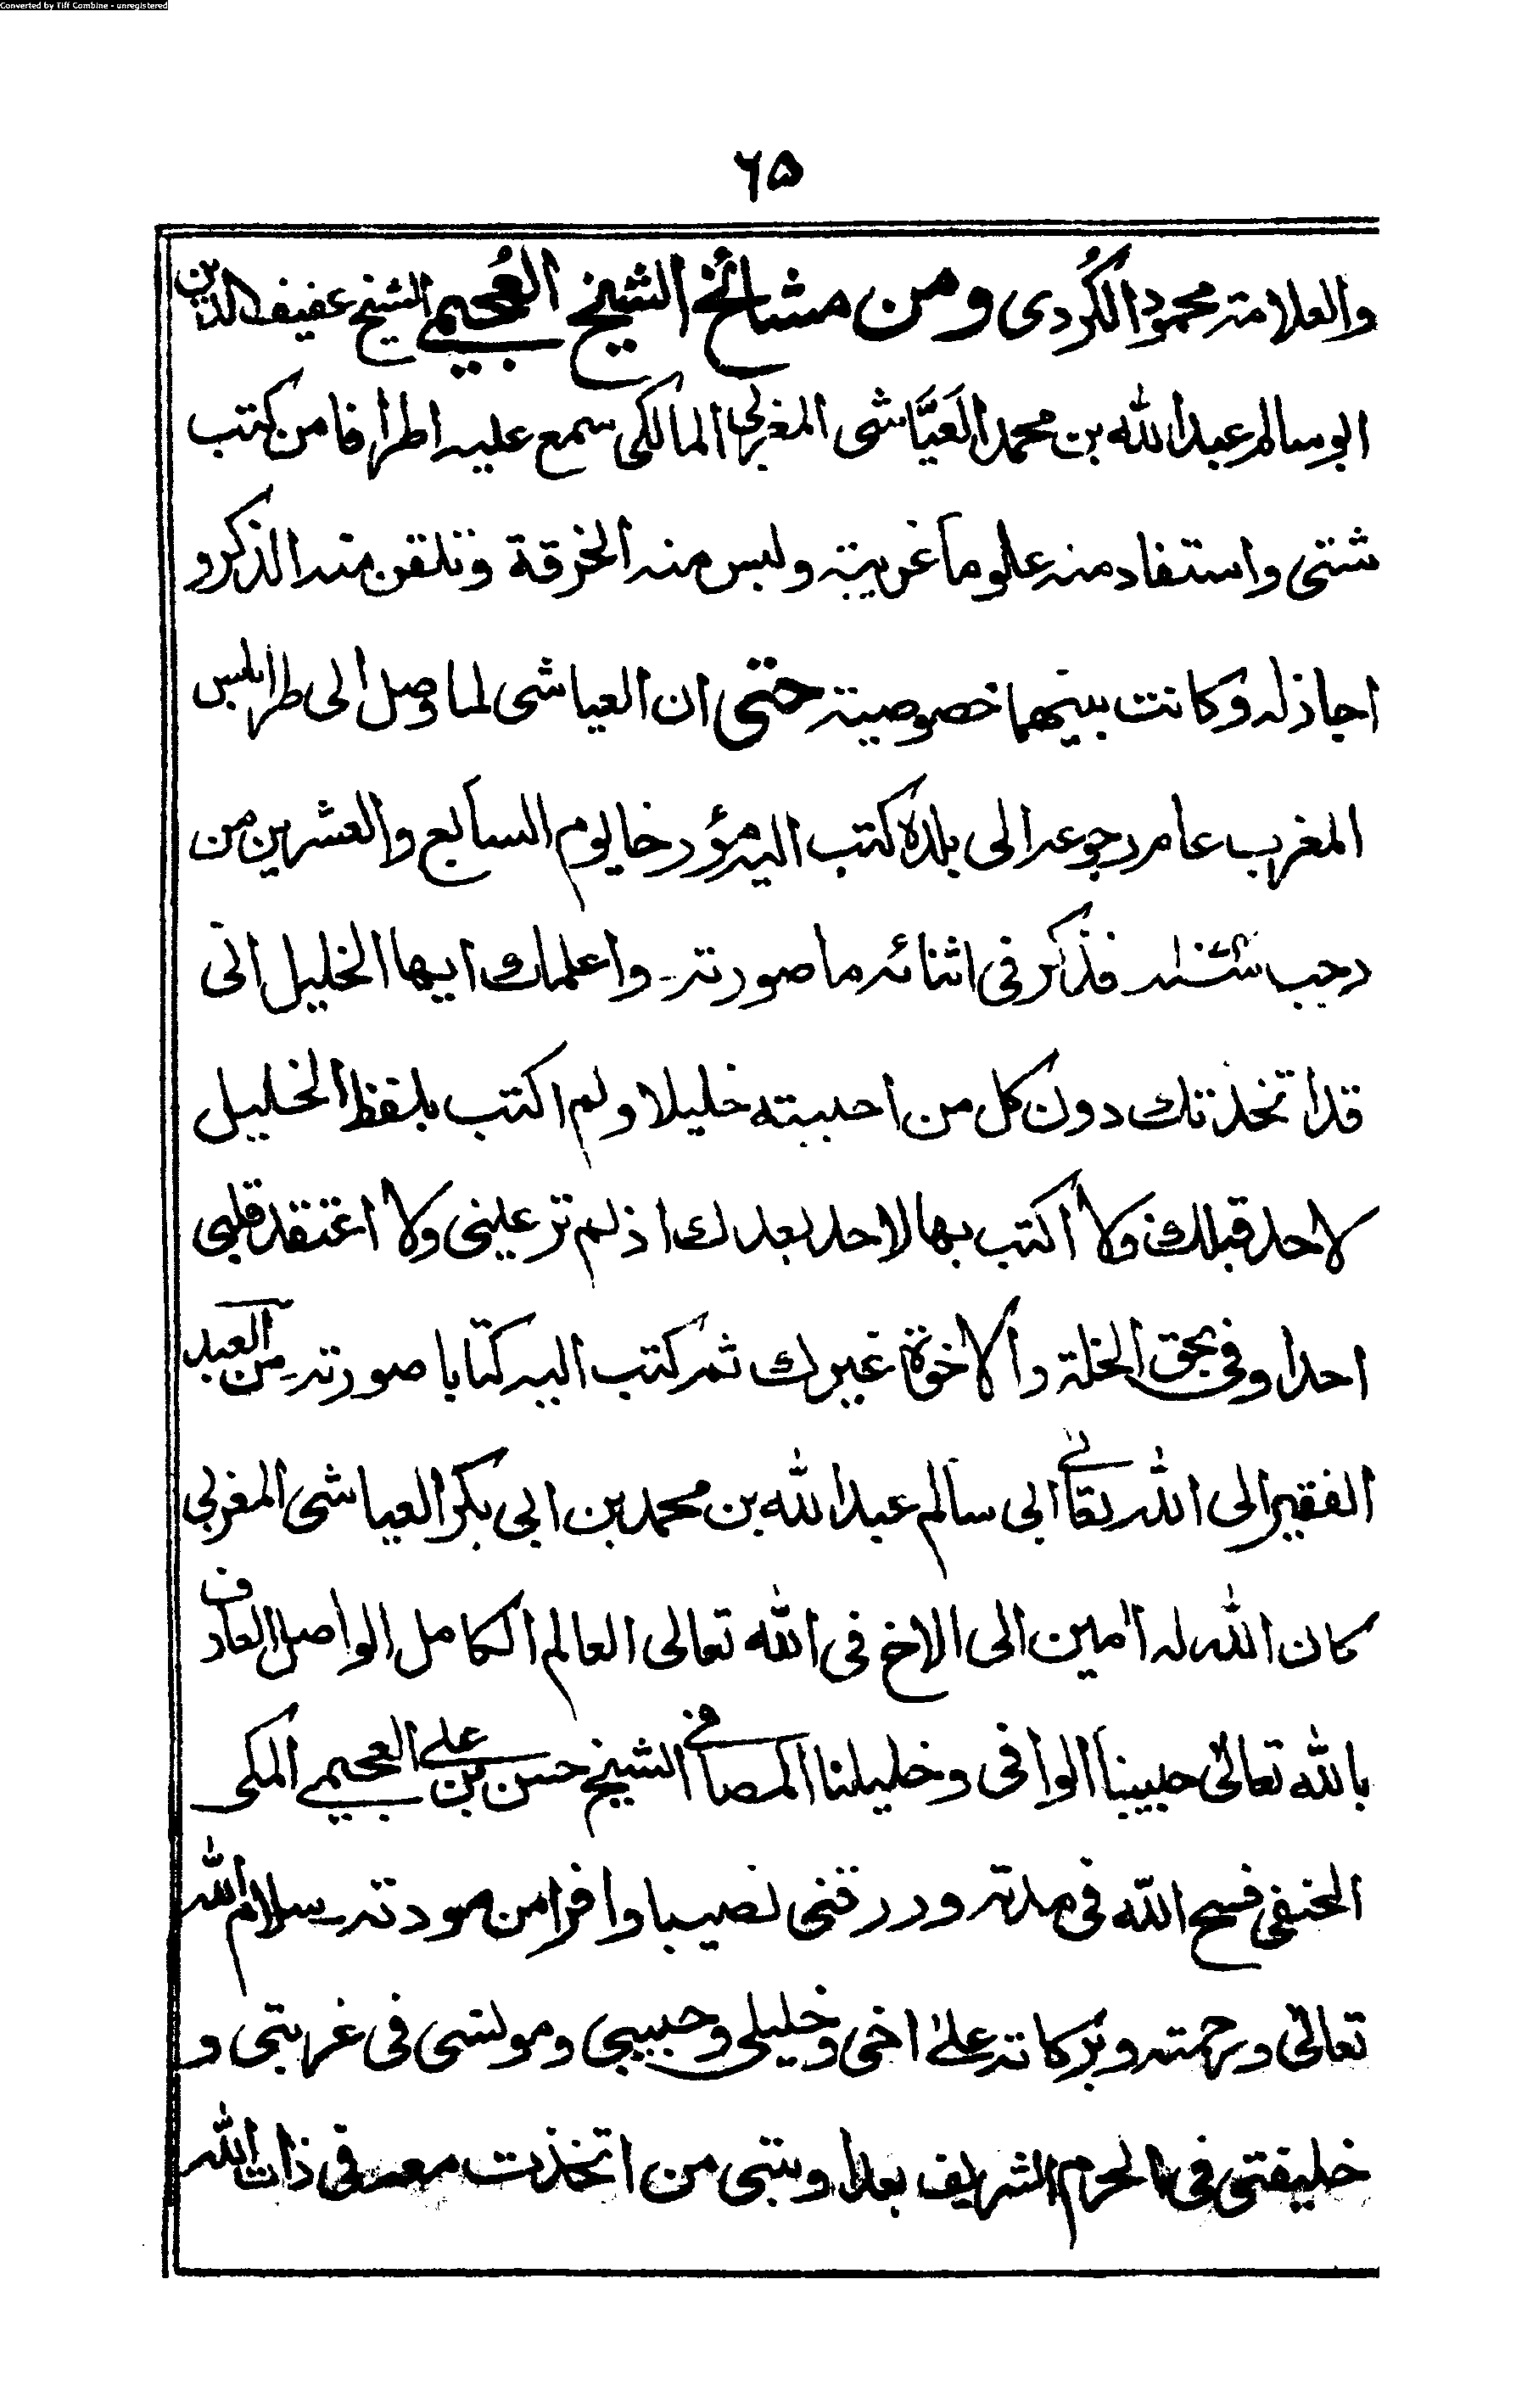 Converted by Tiff Combine - unregistered
٦٥
والعلامة محمود الكُردى ومن مشائخ الشيخ العُجيمى الشيخ عفيف الدين
ابو سالم عبد الله بن محمد العَيَّاشى المغربى المالكى سمع عليه اطرافا من كتب
شتى واستفاد منه علوما غريبة ولبس منه الخرقة وتلقن منه الذكر و
اجازله وكانت بينهما خصوصية حتى ان العياشى لما وصل الى طرابلس
المغرب عام رجوعه الى بلده كتب اليه مؤرخا يوم السابع والعشرين من
رجب فذكر فى اثنائه ما صورته۔ واعلمك ايها الخليل انى
قد اتخذتك دون كل من احببته خليلا ولم اكتب بلفظ الخليل
لاحد قبلك ولا اكتب بها لاحد بعدك اذ لم تر عينى ولا اعتقد قلبى
احدا وفى بحق الخلة والاخوة غيرك ثم كتب اليه كتابا صورته۔ من العبد
الفقير الى الله تعالى ابى سالم عبد الله بن محمد بن ابى بكر العياشى المغربى
كان الله له اٰمين الى الاخ فى الله تعالى العالم الكامل الواصل العارف
بالله تعالىٰ حبيبنا الوافى وخليلنا المصافى الشيخ حسن بن على العجيمى المكى
الحنفى فسح الله فى مدته ورزقنى نصيبا وافرا من مودته۔ سلام الله
تعالىٰ ورحمته وبركاته علىٰ اخى وخليلى وحبيبى ومونسى فى غربتى و
خليفتى فى الحرم الشريف بعد اوبتى من اتخذت معه فى ذات الله